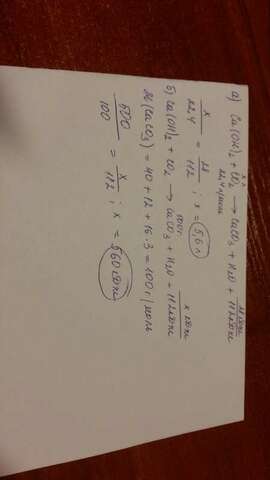 x л 28 кДж
а) Ca(OH)₂ + CO₂ → CaCO₃ + H₂O + 112 кДж
22,4 л/моль
x/22,4 = 28/112 ; x = 5,6 л
500 г x кДж
б) Ca(OH)₂ + CO₂ → CaCO₃ + H₂O + 112 кДж
M(CaCO₃) = 40 + 12 + 16·3 = 100 г/моль
500/100 = x/112 ; x = 560 кДж